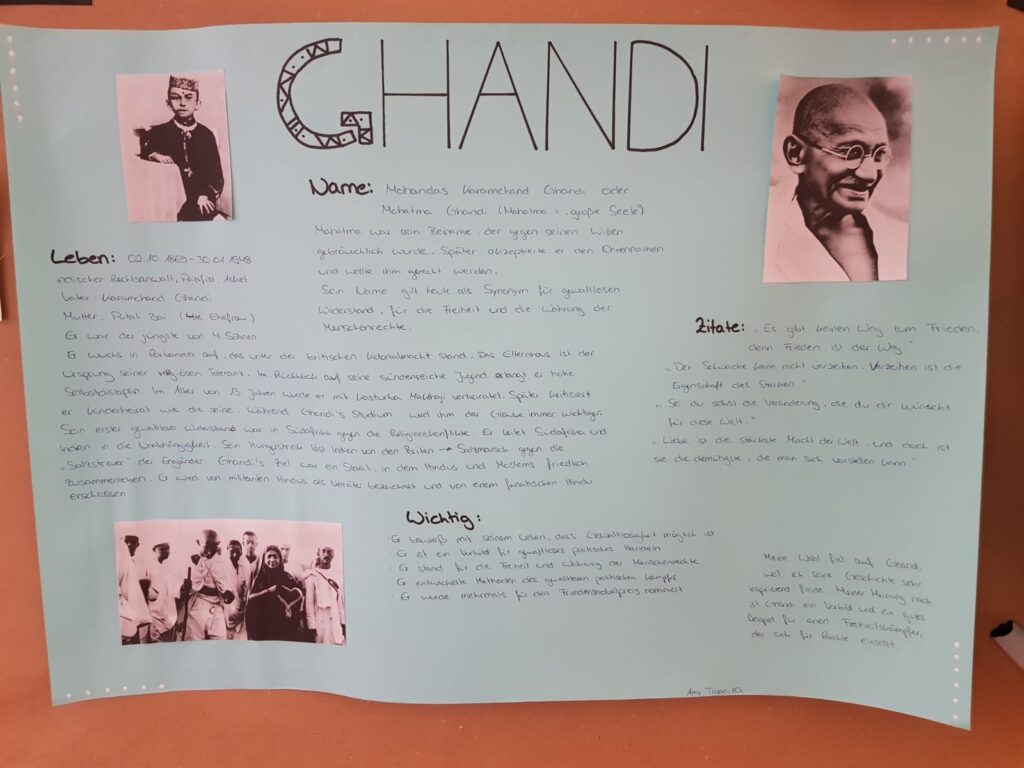 GHANDI
Name: Mohandas Karamchand Ghandi oder
Mahatma Ghandi (Mahatma = „große Seele“)
Mahatma war sein Beiname, der gegen seinen Willen
gebräuchlich wurde. Später akzeptierte er den Ehrennamen
und wollte ihm gerecht werden.
Sein Name gilt heute als Synonym für gewaltlosen
Widerstand, für die Freiheit und die Wahrung der
Menschenrechte.
Leben: 02.10.1869-30.01.1948
indischer Rechtsanwalt, Pazifist, Asket
Vater: Karamchand Ghandi
Mutter: Putali Bai (4te Ehefrau)
Er war der jüngste von 4 Söhnen
Er wuchs in Porbandar auf, das unter der britischen Kolonialmacht stand. Das Elternhaus ist der
Ursprung seiner religiösen Toleranz. Im Rückblick auf seine sündenreiche Jugend erlangt er hohe
Selbstdisziplin. Im Alter von 13 Jahren wurde er mit Kasturba verheiratet. Später kritisiert
er Kinderheirat wie die seine. Während Ghandi's Studium wird ihm der Glaube immer wichtiger.
Sein erster gewaltloser Widerstand war in Südafrika gegen die Religionskonflikte. Er leitet Südafrika und
Indien in die Unabhängigkeit. Sein Hungerstreik löst Indien von den Briten → Salzmarsch gegen die
„Salzsteuer“ der Engländer. Ghandi's Ziel war ein Staat, in dem Hindus und Moslems friedlich
zusammenleben. Er wird von militanten Hindus als Verräter bezeichnet und von einem fanatischen Hindu
erschossen.
Zitate: „Es gibt keinen Weg zum Frieden,
denn Frieden ist der Weg.“
„Der Schwache kann nicht verzeihen. Verzeihen ist die
Eigenschaft des Starken.“
„Sei du selbst die Veränderung, die du dir wünscht
für diese Welt.“
„Liebe ist die stärkste Macht der Welt, und doch ist
sie die demütigste, die man sich vorstellen kann.“
Wichtig:
· Er beweißt mit seinem Leben, dass Gewaltlosigkeit möglich ist
· Er ist ein Vorbild für gewaltloses politisches Handeln
· Er stand für die Freiheit und Wahrung der Menschenrechte
· Er entwickelte Methoden des gewaltlosen politischen Kampfes
· Er wurde mehrmals für den Friedensnobelpreis nominiert
Meine Wahl fiel auf Ghandi,
weil ich seine Geschichte sehr
inspirierend finde. Meiner Meinung nach
ist Ghandi ein Vorbild und ein gutes
Beispiel für einen Freiheitskämpfer,
der sich für Rechte einsetzt
Amy